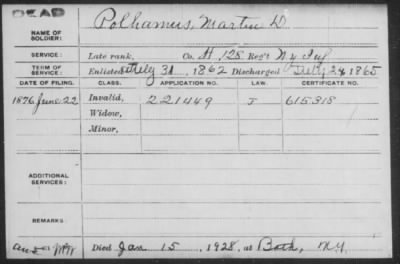 DEAD
NAME OF SOLDIER: Polhamus, Martin D
SERVICE: Late rank, Co. H 128 Reg't N Y Inf
TERM OF SERVICE: Enlisted July 31, 1862 Discharged July 28 1865
DATE OF FILING. CLASS. APPLICATION NO. LAW. CERTIFICATE NO.
1876 June 22 Invalid, 221449 J 615318
Widow,
Minor,
ADDITIONAL SERVICES:
REMARKS:
Died Jan 15, 1928, at Bath, N.Y.